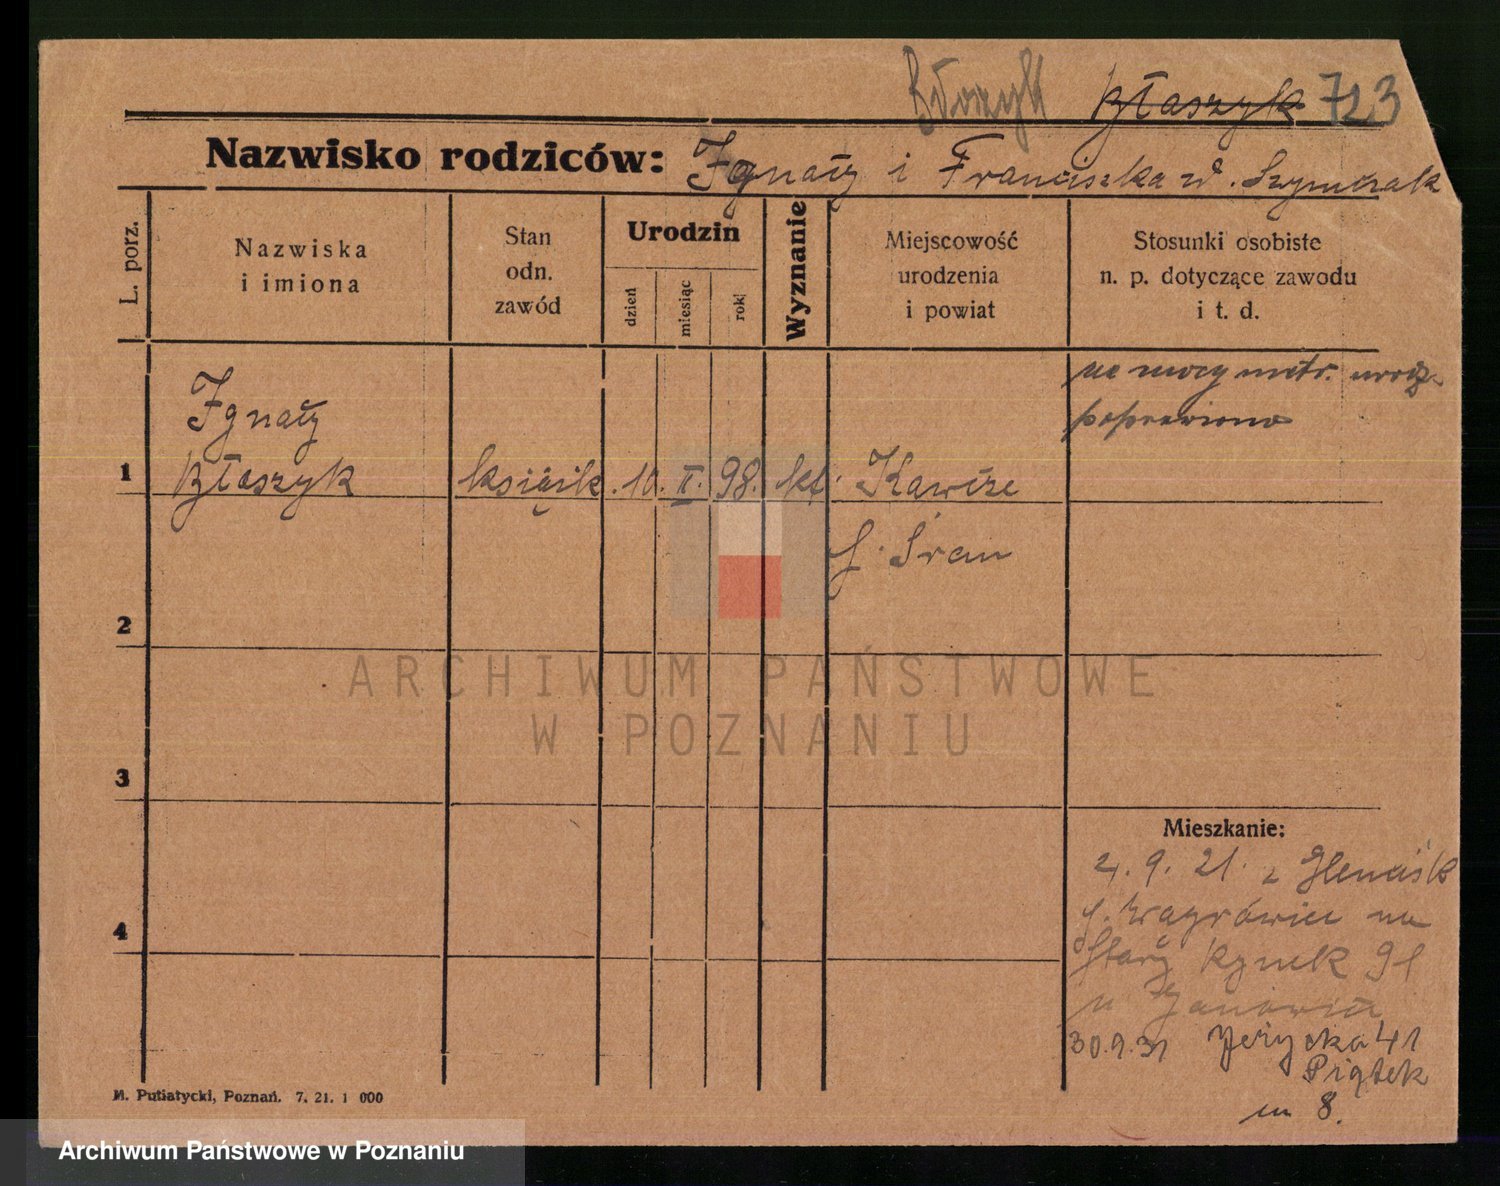 Błaszyk 723
Nazwisko rodziców: Ignaty i Franciszka z d. Szymczak
L. porz.
Nazwiska
i imiona
Stan
odn.
zawód
Urodzin
dzień
miesiąc
rok
Wyznanie
Miejscowość
urodzenia
i powiat
Stosunki osobiste
n. p. dotyczące zawodu
i t. d.
na mocy metr. urodz.
poprawiono
Ignaty
1 Błaszyk 10. II. 98. kt. Kawcze
p. Śrem
2
3
4
ARCHIWUM PAŃSTWOWE
W POZNANIU
Mieszkanie:
2. 9. 21. z
p. Wągrówiec na
Stary Rynek 91
u
30.9.31 Jeżycka 41
Piątek
m 8.
M. Putiatycki, Poznań. 7. 21. 1 000
Archiwum Państwowe w Poznaniu